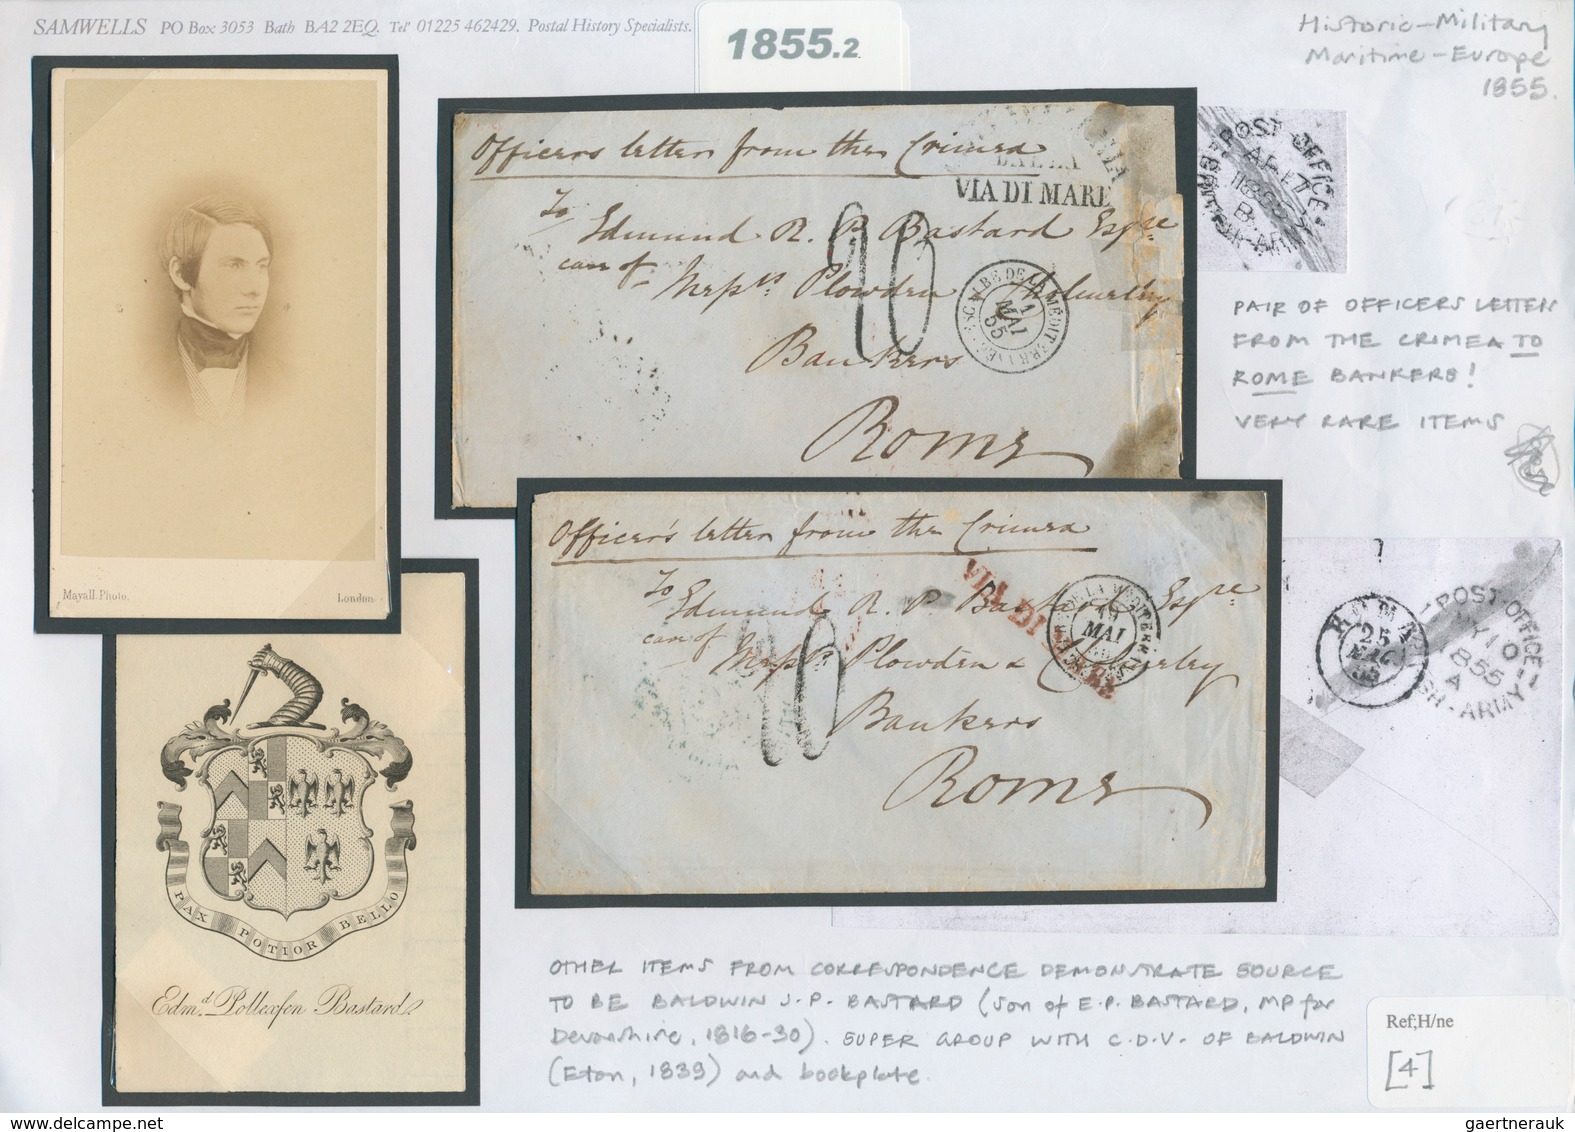 SAMWELLS PO Box 3053 Bath BA2 2EQ. Tel' 01225 462429. Postal History Specialists.
1855.2
Historic-Military
Maritime-Europe
1855.
Mayall. Photo. London.
Officers letter from the Crimea
VIA DI MARE
To
Edmund R. P. Bastard Esqre
care of
Messrs. Plowden
Bankers
Rome
20
DE LA MÉDITERRANÉE
1
MAI
55
POST OFFICE
AP 17
1855
B
PAIR OF OFFICERS LETTER
FROM THE CRIMEA TO
ROME BANKERS!
VERY RARE ITEMS
Officer's letter from the Crimea
To
Edmund R. P. Bastard Esqre
care of
Messrs Plowden & Cholmeley
Bankers
Rome
VIA DI MARE
DE LA MÉDITERR
MAI
ROMA
25
MAG
55
POST-OFFICE
1855
A
SH-ARMY
PAX POTIOR BELLO
Edmd. Pollexfen Bastard
OTHER ITEMS FROM CORRESPONDENCE DEMONSTRATE SOURCE
TO BE BALDWIN J.P. BASTARD (son of E.P. BASTARD, MP for
Devonshire, 1816-30). SUPER GROUP WITH C.D.V. OF BALDWIN
(Eton, 1839) and bookplate.
Ref;H/ne
[4]
www.delcampe.net
gaertnerauk